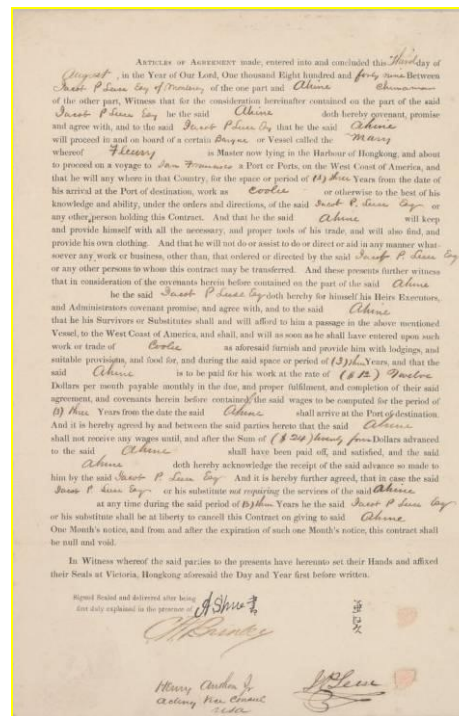 ARTICLES OF AGREEMENT made, entered into and concluded this Third day of
August, in the Year of Our Lord, One thousand Eight hundred and forty nine Between
Jacob P Leese Esq of Monterey of the one part and Ahine Chinaman
of the other part, Witness that for the consideration hereinafter contained on the part of the said
Jacob P Leese Esq he the said Ahine doth hereby covenant, promise
and agree with, and to the said Jacob P Leese Esq that he the said Ahine
will proceed in and on board of a certain or Vessel called the Mary
whereof is Master now lying in the Harbour of Hongkong, and about
to proceed on a voyage to San Francisco a Port or Ports, on the West Coast of America, and
that he will any where in that Country, for the space or period of (3) three Years from the date of
his arrival at the Port of destination, work as Coolie or otherwise to the best of his
knowledge and ability, under the orders and directions, of the said Jacob P. Leese Esq or
any other person holding this Contract. And that he the said Ahine will keep
and provide himself with all the necessary, and proper tools of his trade, and will also find, and
provide his own clothing. And that he will not do or assist to do or direct or aid in any manner what-
soever any work or business, other than, that ordered or directed by the said Jacob P. Leese Esq
or any other persons to whom this contract may be transferred. And these presents further witness
that in consideration of the covenants herein before contained on the part of the said Ahine
he the said Jacob P Leese Esq doth hereby for himself his Heirs Executors,
and Administrators covenant promise, and agree with, and to the said Ahine
that he his Survivors or Substitutes shall and will afford to him a passage in the above mentioned
Vessel, to the West Coast of America, and shall, and will as soon as he shall have entered upon such
work or trade of Coolie as aforesaid furnish and provide him with lodgings, and
suitable provisions, and food for, and during the said space or period of (3) three Years, and that the
said Ahine is to be paid for his work at the rate of ($ 12) Twelve
Dollars per month payable monthly in the due, and proper fulfilment, and completion of their said
agreement, and covenants herein before contained, the said wages to be computed for the period of
(3) three Years from the date the said Ahine shall arrive at the Port of destination.
And it is hereby agreed by and between the said parties hereto that the said Ahine
shall not receive any wages until, and after the Sum of ($ 24) twenty four Dollars advanced
to the said Ahine shall have been paid off, and satisfied, and the said
Ahine doth hereby acknowledge the receipt of the said advance so made to
him by the said Jacob P. Leese Esq And it is hereby further agreed, that in case the said
Jacob P. Leese Esq or his substitute not requiring the services of the said Ahine
at any time during the said period of (3) three Years he the said Jacob P Leese Esq
or his substitute shall be at liberty to cancell this Contract on giving to said Ahine
One Month's notice, and from and after the expiration of such one Month's notice, this contract shall
be null and void.
In Witness whereof the said parties to the presents have hereunto set their Hands and affixed
their Seals at Victoria, Hongkong aforesaid the Day and Year first before written.
Signed Sealed and delivered after being
first duly explained in the presence of
Henry Anthon Jr
acting Vice Consul
USA
JP Leese